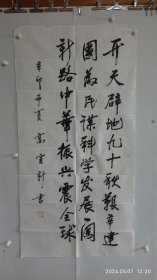 开天辟地九十秋艰辛建
国为民谋科学发展闯
新路中华振兴震全球
辛卯年夏 高宜轩书
2024.05.07 12:00